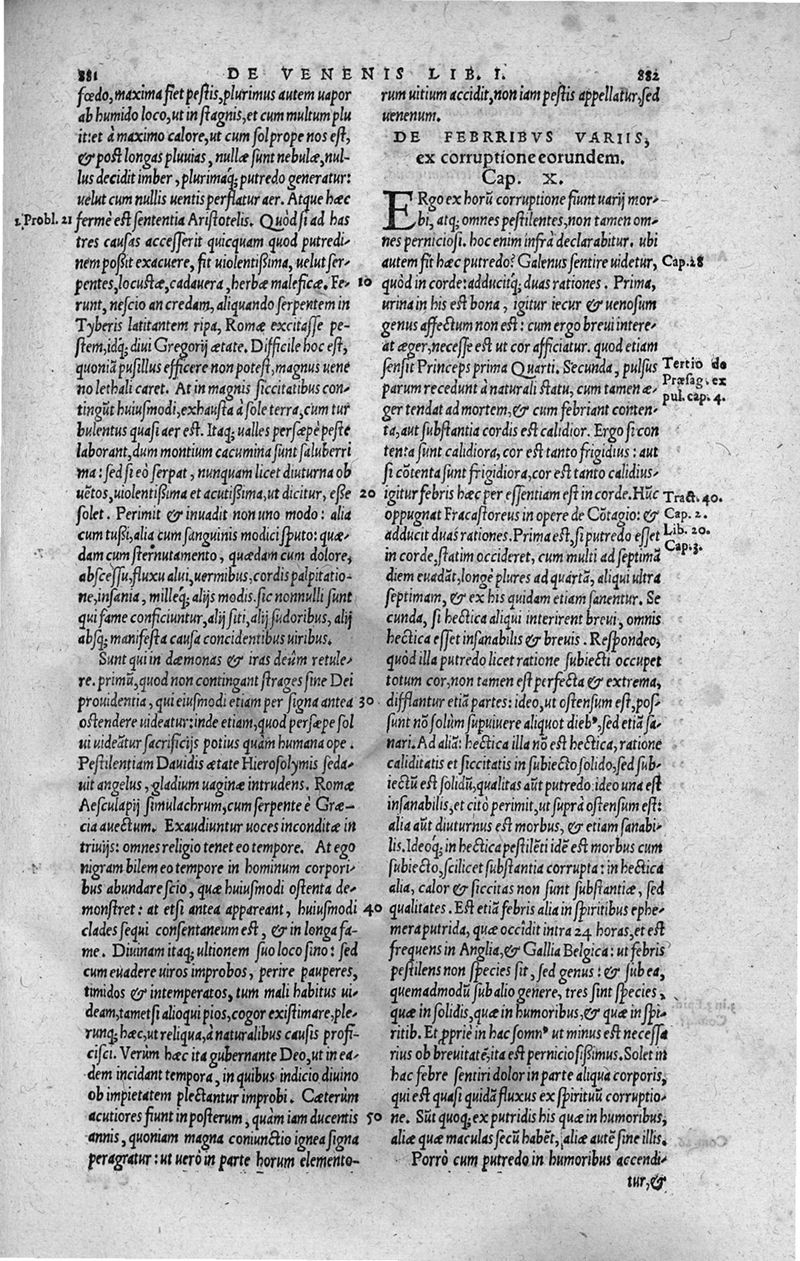 881 DE VENENIS LIB. I. 882
fœdo, maxima fiet pestis, plurimus autem uapor
ab humido loco, ut in stagnis, et cum multum plu
it: et à maximo calore, ut cum sol prope nos est,
& post longas pluuias, nullæ sunt nebulæ, nul-
lus decidit imber, plurimaq; putredo generatur:
uelut cum nullis uentis perflatur aer. Atque hæc
1. Probl. 21 fermè est sententia Aristotelis. Quòd si ad has
tres causas accesserit quicquam quod putredi-
nem possit exacuere, fit uiolentissima, uelut ser-
pentes, locustæ, cadauera, herbæ maleficæ. Fe- 10
runt, nescio an credam, aliquando serpentem in
Tyberis latitantem ripa, Romæ excitasse pe-
stem, idq; diui Gregorij ætate. Difficile hoc est,
quoniã pusillus efficere non potest, magnus uene
no lethali caret. At in magnis siccitatibus con-
tingũt huiusmodi, exhausta à sole terra, cum tur
bulentus quasi aer est. Itaq; ualles persæpè peste
laborant, dum montium cacumina sunt saluberri
ma: sed si eò serpat, nunquam licet diuturna ob
uẽtos, uiolentissima et acutissima, ut dicitur, esse 20
solet. Perimit & inuadit non uno modo: alia
cum tussi, alia cum sanguinis modici sputo: quæ-
dam cum sternutamento, quædam cum dolore,
abscessu, fluxu alui, uermibus, cordis palpitatio-
ne, insania, milleq; alijs modis. sic nonnulli sunt
qui fame conficiuntur, alij siti, alij sudoribus, alij
absq; manifesta causa concidentibus uiribus.
Sunt qui in dæmonas & iras deûm retule-
re. primũ, quod non contingant strages sine Dei
prouidentia, qui eiusmodi etiam per signa antea 30
ostendere uideatur: inde etiam, quod persæpe sol
ui uideãtur sacrificijs potius quàm humana ope.
Pestilentiam Dauidis ætate Hierosolymis seda-
uit angelus, gladium uaginæ intrudens. Romæ
Aesculapij simulachrum, cum serpente è Græ-
cia auectum. Exaudiuntur uoces inconditæ in
triuijs: omnes religio tenet eo tempore. At ego
nigram bilem eo tempore in hominum corpori-
bus abundare scio, quæ huiusmodi ostenta de-
monstret: at etsi antea appareant, huiusmodi 40
clades sequi consentaneum est, & in longa fa-
me. Diuinam itaq; ultionem suo loco sino: sed
cum euadere uiros improbos, perire pauperes,
timidos & intemperatos, tum mali habitus ui-
deam, tametsi alioqui pios, cogor existimare, ple-
runq; hæc, ut reliqua, à naturalibus causis profi-
cisci. Verùm hæc ita gubernante Deo, ut in ea-
dem incidant tempora, in quibus indicio diuino
ob impietatem plectantur improbi. Cæterùm
acutiores fiunt in posterum, quàm iam ducentis 50
annis, quoniam magna coniunctio ignea signa
peragratur: ut uerò in parte horum elemento-
rum uitium accidit, non iam pestis appellatur, sed
uenenum.
DE FEBRIBVS VARIIS,
ex corruptione eorundem.
Cap. X.
ERgo ex horũ corruptione fiunt uarij mor-
bi, atq; omnes pestilentes, non tamen om-
nes perniciosi. hoc enim infrà declarabitur. ubi
autem fit hæc putredo? Galenus sentire uidetur, Cap. 28
quòd in corde: adducitq; duas rationes. Prima,
urina in his est bona, igitur iecur & uenosum
genus affectum non est: cum ergo breui intere-
at æger, necesse est ut cor afficiatur. quod etiam
sensit Princeps prima Quarti. Secunda, pulsus Tertio de
parum recedunt à naturali statu, cum tamen æ- Præsag. ex
ger tendat ad mortem, & cum febriant conten- pul. cap. 4.
ta, aut substantia cordis est calidior. Ergo si con
tenta sunt calidiora, cor est tanto frigidius: aut
si cõtenta sunt frigidiora, cor est tanto calidius-
igitur febris hæc per essentiam est in corde. Hũc Tract. 40.
oppugnat Fracastoreus in opere de Cõtagio: & Cap. 2.
adducit duas rationes. Prima est, si putredo esset Lib. 20.
in corde, statim occideret, cum multi ad septimã Cap. 3.
diem euadãt, longè plures ad quartã, aliqui ultra
septimam, & ex his quidam etiam sanentur. Se
cunda, si hectica aliqui interirent breui, omnis
hectica esset insanabilis & breuis. Respondeo,
quòd illa putredo licet ratione subiecti occupet
totum cor, non tamen est perfecta & extrema,
difflantur etiã partes: ideo, ut ostensum est, pos-
sunt nõ solùm supuiuere aliquot dieb', sed etiã sa-
nari. Ad aliã: hectica illa nõ est hectica, ratione
caliditatis et siccitatis in subiecto solido, sed sub-
iectũ est solidũ, qualitas aũt putredo: ideo una est
insanabilis, et citò perimit, ut suprà ostensum est:
alia aũt diuturnus est morbus, & etiam sanabi-
lis. Ideoq; in hectica pestilẽti idẽ est morbus cum
subiecto, scilicet substantia corrupta: in hectica
alia, calor & siccitas non sunt substantiæ, sed
qualitates. Est etiã febris alia in spiritibus ephe-
mera putrida, quæ occidit intra 24 horas, et est
frequens in Anglia, & Gallia Belgica: ut febris
pestilens non species sit, sed genus: & sub ea,
quemadmodũ sub alio genere, tres sint species,
quæ in solidis, quæ in humoribus, & quæ in spi-
ritib. Et propriè in hac somn' ut minus est necessa
rius ob breuitatẽ, ita est perniciosissimus. Solet in
hac febre sentiri dolor in parte aliqua corporis,
qui est quasi quidã fluxus ex spirituũ corruptio-
ne. Sũt quoq; ex putridis his quæ in humoribus,
aliæ quæ maculas secũ habẽt, aliæ autẽ sine illis.
Porrò cum putredo in humoribus accendi-
tur, &